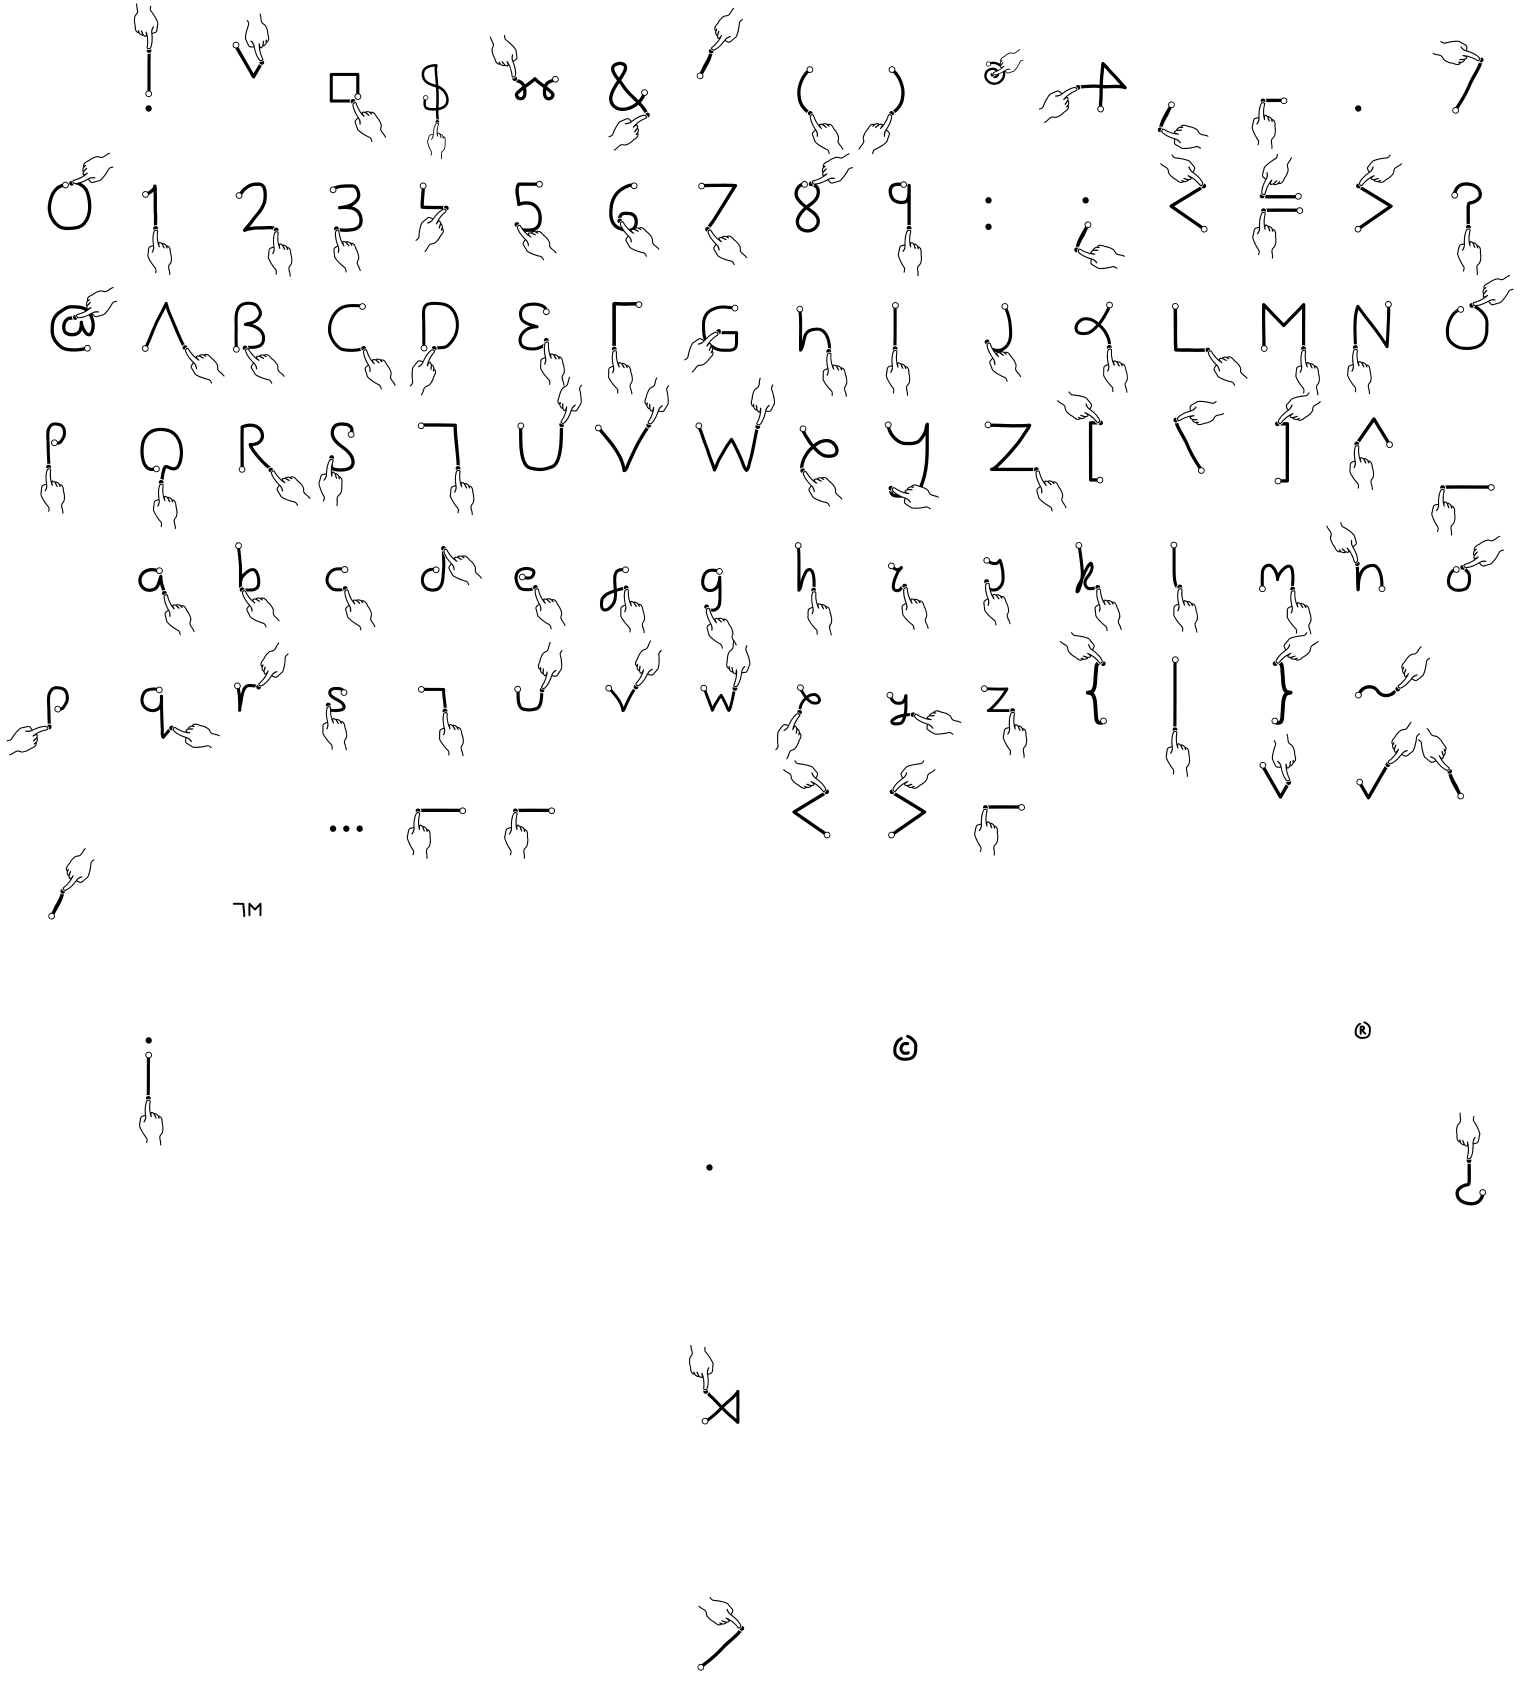 ! " # $ % & ' ( ) * + , - . /
0 1 2 3 4 5 6 7 8 9 : ; < = > ?
@ A B C D E F G H I J K L M N O
P Q R S T U V W X Y Z [ \ ] ^ _
a b c d e f g h i j k l m n o
p q r s t u v w x y z { | } ~
… < >
™
¡ © ®
·
¿